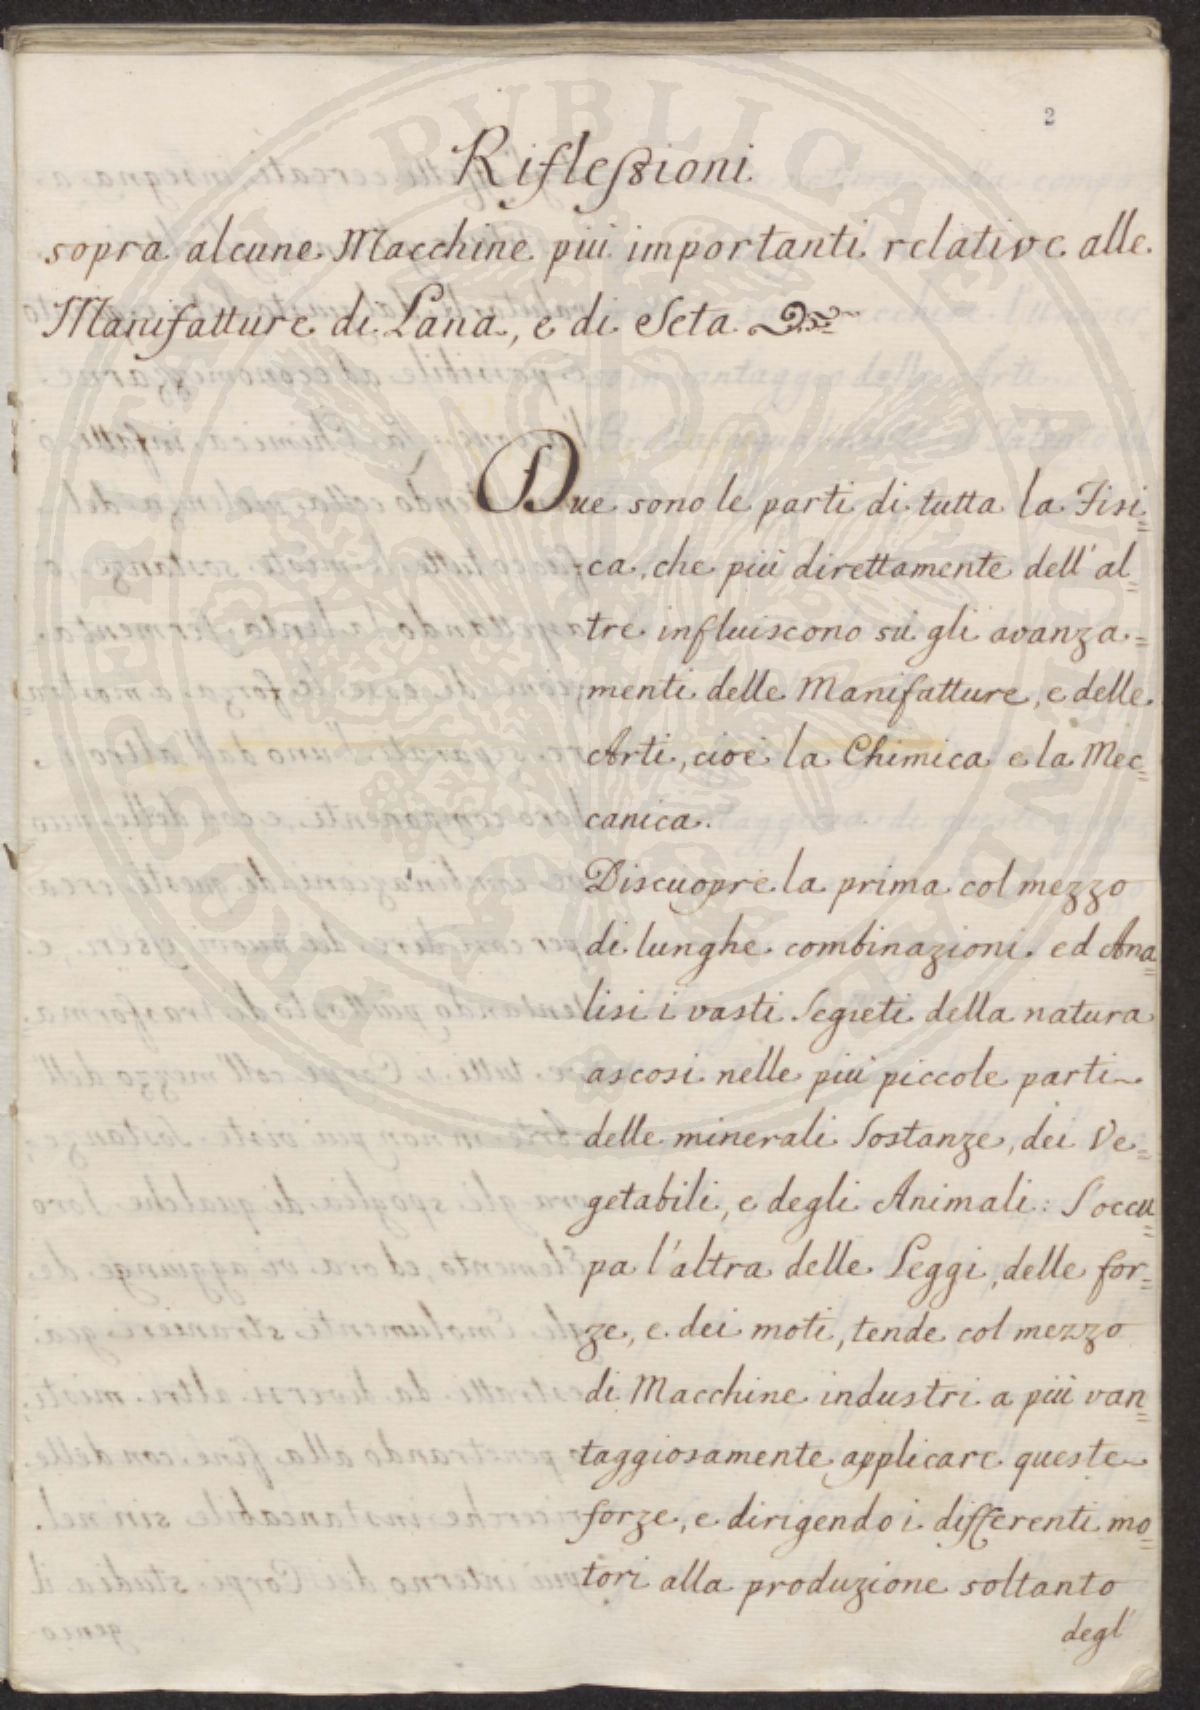 2
Riflessioni
sopra alcune Macchine più importanti relative alle
Manifatture di Lana, e di Seta
Due sono le parti di tutta la Fisi=
ca, che più direttamente dell'al=
tre influiscono sù gli avanza=
menti delle Manifatture, e delle
Arti, cioè la Chimica e la Mec=
canica.
Discuopre la prima col mezzo
di lunghe combinazioni ed Ana=
lisi i vasti Segreti della natura
ascosi nelle più piccole parti
delle minerali Sostanze, dei Ve=
getabili, e degli Animali: S'occu=
pa l'altra delle Leggi, delle for=
ze, e dei moti, tende col mezzo
di Macchine industri a più van=
taggiosamente applicare queste
forze, e dirigendo i differenti mo=
tori alla produzione soltanto
degl'